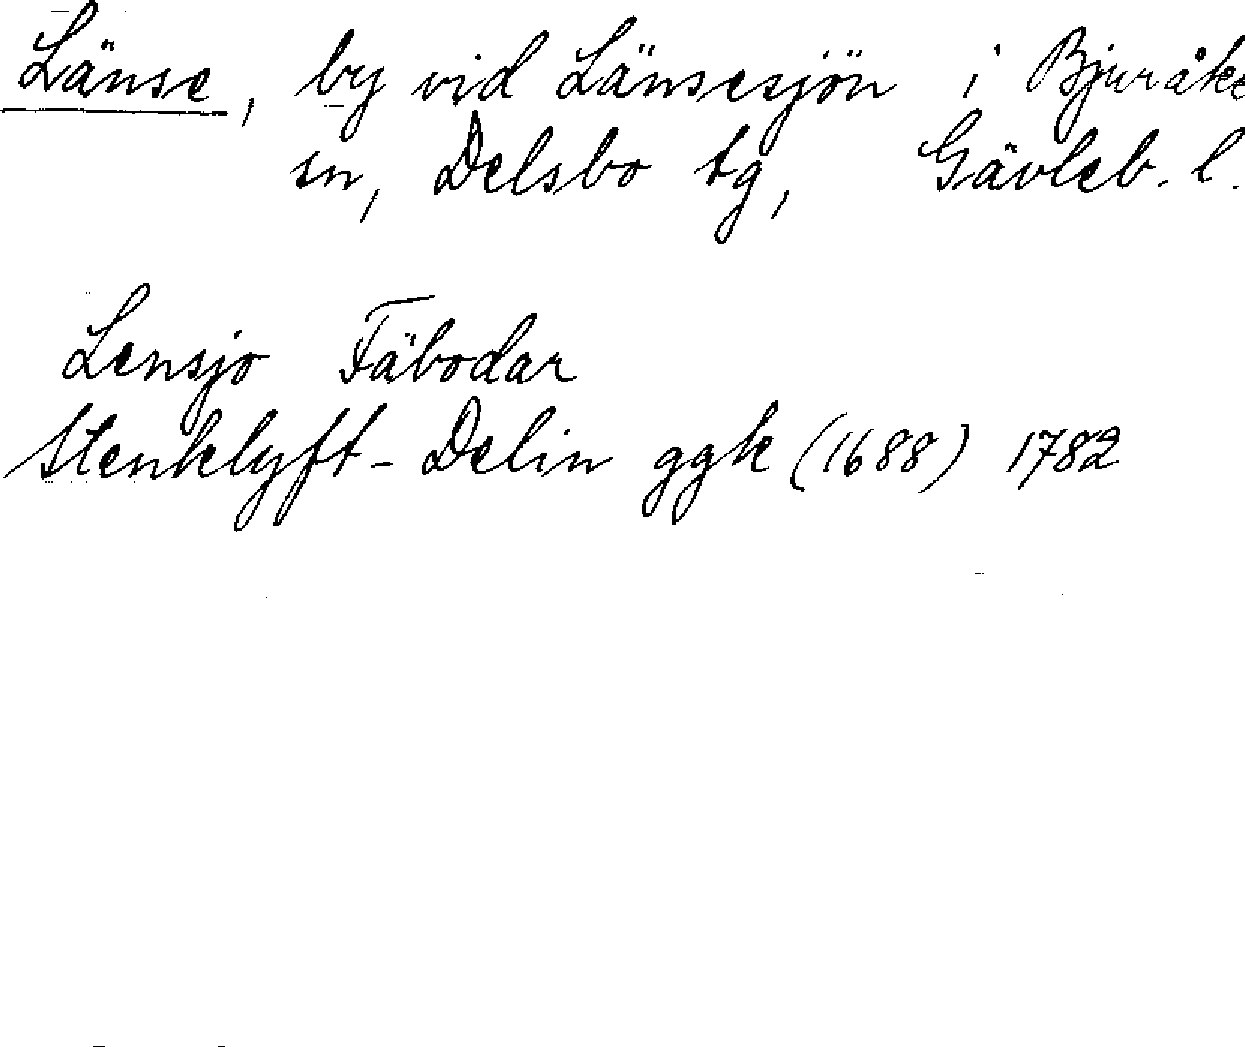 Länse, by vid Länsesjön i Bjuråke
sn, Delsbo tg, Gävleb. l.
Lensjo Fäbodar
Stenklyft - Delin ggk (1688) 1782